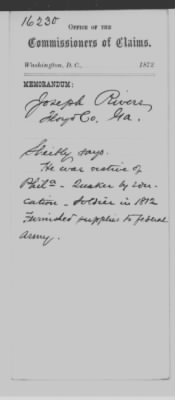 16230
OFFICE OF THE
Commissioners of Claims.
Washington, D. C., 1872
MEMORANDUM:
Joseph Rivers
Floyd Co, Ga.
Sheibly says.
He was native of
Phila - Quaker by edu-
cation - Soldier in 1812
Furnished supplies to federal
army.